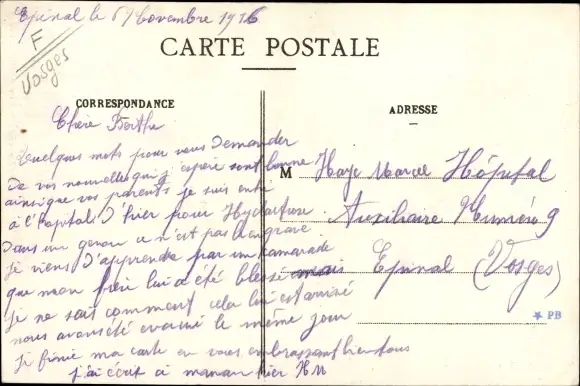 Epinal le 6 Novembre 1916
F
Vosges
CARTE POSTALE
CORRESPONDANCE
ADRESSE
Chère Berthe
Quelques mots pour vous Demander
De vos nouvelles qui j'espère sont bonne
ainsi que vos parents je suis entré
à l'hopital D'hier pour Hydartrose
Dans un genou ce n'est pas bien grave
je viens D'apprendre par un camarade
que mon frère lui a été blessé mais
je ne sais comment cela lui est arrivé
nous avons été évacué le même jour
je finie ma carte en vous embrassant bien tous
j'ai écrit a maman hier HM
M Haye Marcel Hôpital
Auxiliaire Numéro 9
Epinal (Vosges)
PB